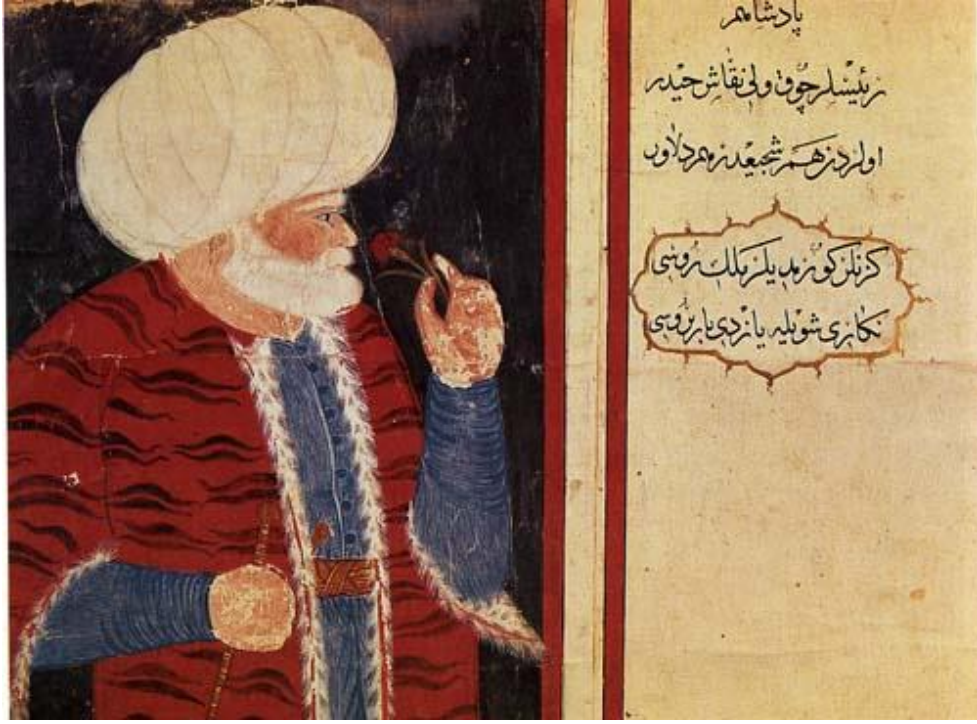 پادشاهم
رئیسلر چوق ولی نقاش حیدر
اولردر هم شجیعدر هم دلاور
كزنلر كورمدیلر ملك روسی
نكاری شویله یازدی باربروسی